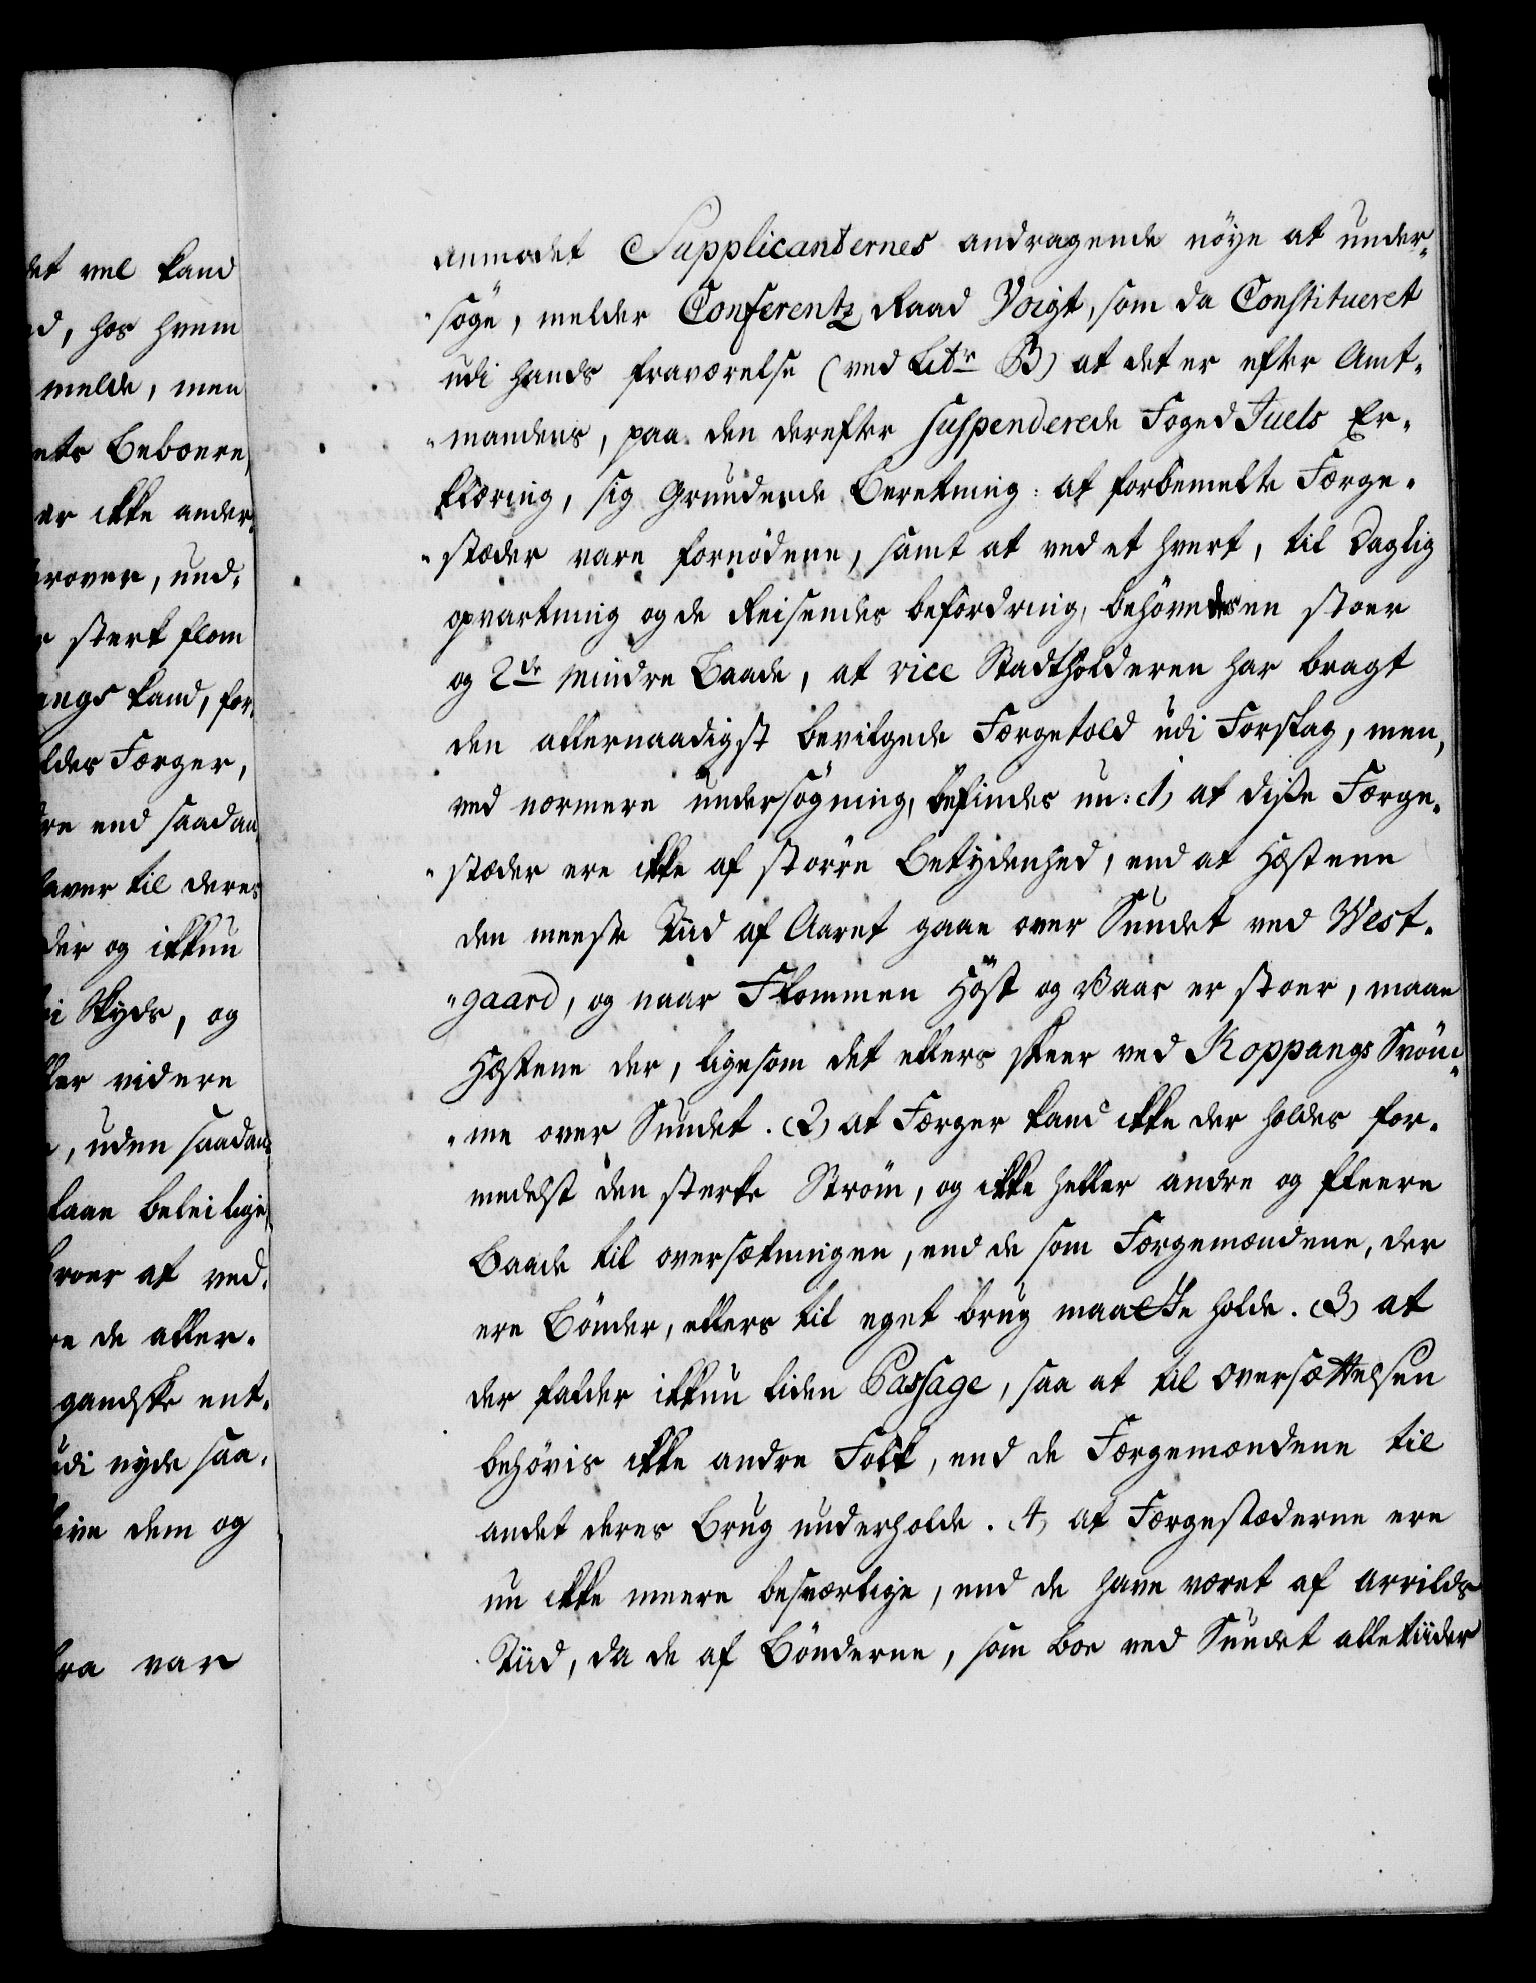 det vel kand
d, hos hvem
melde, men
ets Beboere,
er ikke ander,
prover, und,
r sterk flom
angs kand, for,
ldes Færger,
re end saadan,
laver til deres
der og ikkun
i Skyds, og
ller videre
, uden saadan
kaan beleilige,
roer at ved,
re de aller,
gandske ent,
udi nyde saa,
give dem og
fra var
anmodet Supplicanternes andragende nöye at under,
"söge, melder Conferentz Raad Voigt, som da Constitueret
udi hands fraværelse (ved Litr B) at det er efter Amt,
"mandens, paa den derefter suspenderede Foged Juels Er,
klæring, sig Grundende Beretning: at forbemelte Færge,
"stæder vare fornödene, samt at ved et hvert, til Daglig
opvartning og de Reisendes befordring, behövedes en stoer
og 2de Mindre Baade, at vice Stadtholderen har bragt
den allernaadigst bevilgede Færgetold udi Forslag, men,
ved nærmere undersögning, befindes nu: (1) at disse Færge,
"stæder ere ikke af större Betydenhed, end at Hæstene
den meeste Tiid af Aaret gaae over Sundet ved West,
"gaard, og naar Flommen Höst og Vaar er stoer, maae
Hæstene der, ligesom det ellers skeer ved Koppangs Svöm,
"me over Sundet. (2) at Færger kand ikke der holdes for,
medelst den sterke Ström, og ikke heller andre og fleere
Baade til oversætningen, end de som Færgemændene, der
ere Bönder, ellers til eget brug maatte holde. (3) at
der falder ikkun liden Passage, saa at til oversættelsen
behövis ikke andre Folk, end de Færgemændene til
andet deres Brug underholde. (4) at Færgestæderne ere
nu ikke meere besværlige, end de have været af arrilds
Tiid, da de af Bönderne, som boe ved Sundet alletiider